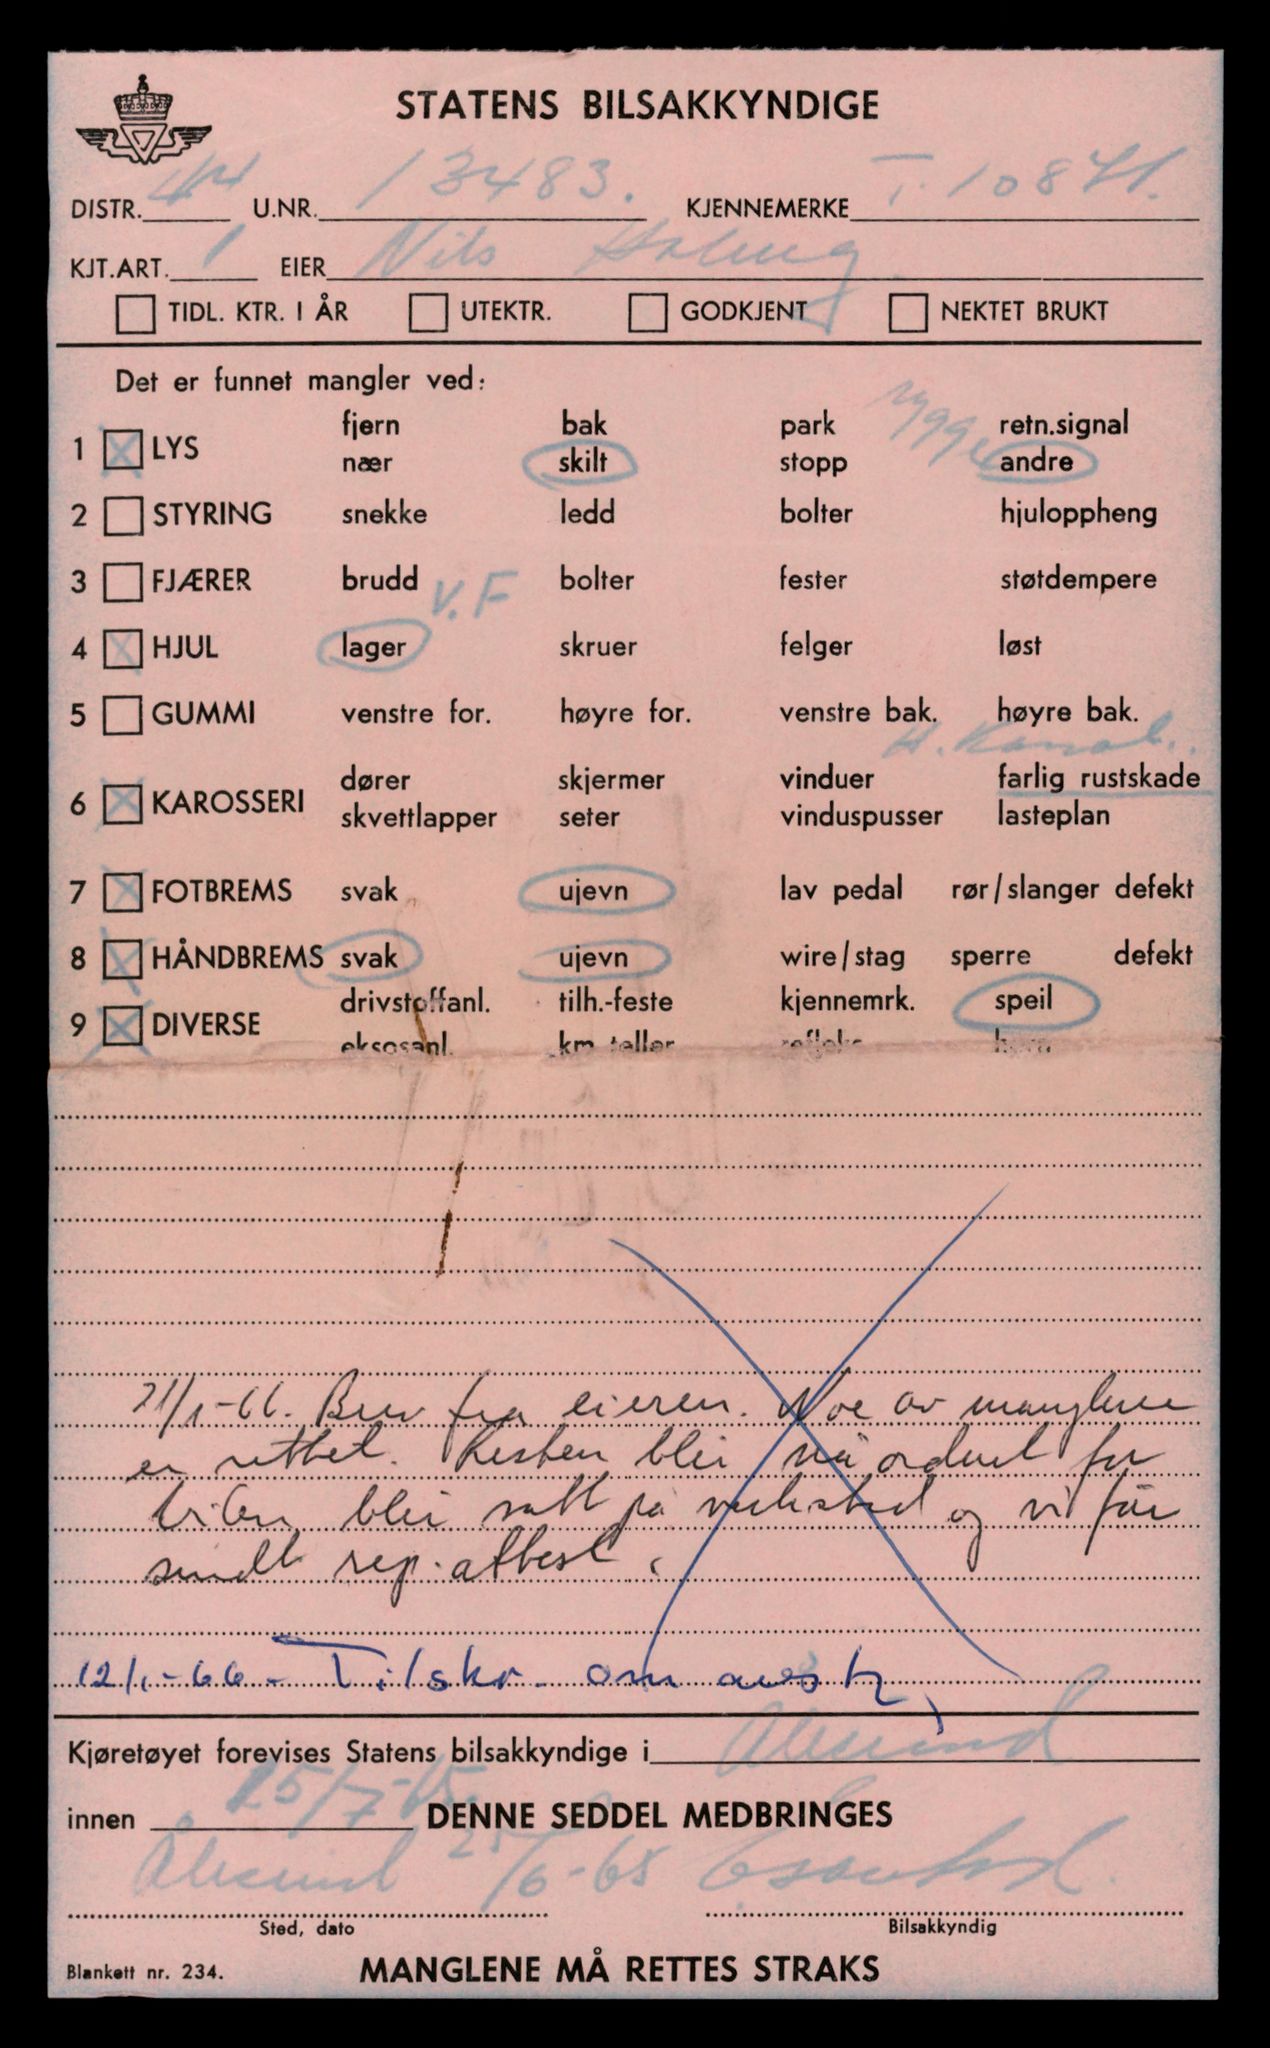 STATENS BILSAKKYNDIGE
DISTR. 44 U.NR. 13483. KJENNEMERKE T. 10871.
KJT.ART. 1 EIER Nils
TIDL. KTR. I ÅR UTEKTR. GODKJENT NEKTET BRUKT
Det er funnet mangler ved:
fjern bak park rygge retn.signal
1 X LYS
nær skilt stopp andre
2 STYRING snekke ledd bolter hjuloppheng
3 FJÆRER brudd bolter fester støtdempere
V.F
4 X HJUL lager skruer felger løst
5 GUMMI venstre for. høyre for. venstre bak. høyre bak.
H. Kanal.
dører skjermer vinduer farlig rustskade
6 X KAROSSERI
skvettlapper seter vinduspusser lasteplan
7 X FOTBREMS svak ujevn lav pedal rør/slanger defekt
8 X HÅNDBREMS svak ujevn wire/stag sperre defekt
drivstoffanl. tilh.-feste kjennemrk. speil
9 X DIVERSE
eksosanl. km.teller refleks horn
21/1-66. Brev fra eieren. Noe av manglene
er rettet. Resten blir nå ordnet for
bilen blir satt på verksted og vi får
sendt rep.attest.
12/1-66 - Tilskr. om
Kjøretøyet forevises Statens bilsakkyndige i Ålesund
innen 25/7-65. DENNE SEDDEL MEDBRINGES
Ålesund 25/6-65
Sted, dato Bilsakkyndig
Blankett nr. 234. MANGLENE MÅ RETTES STRAKS